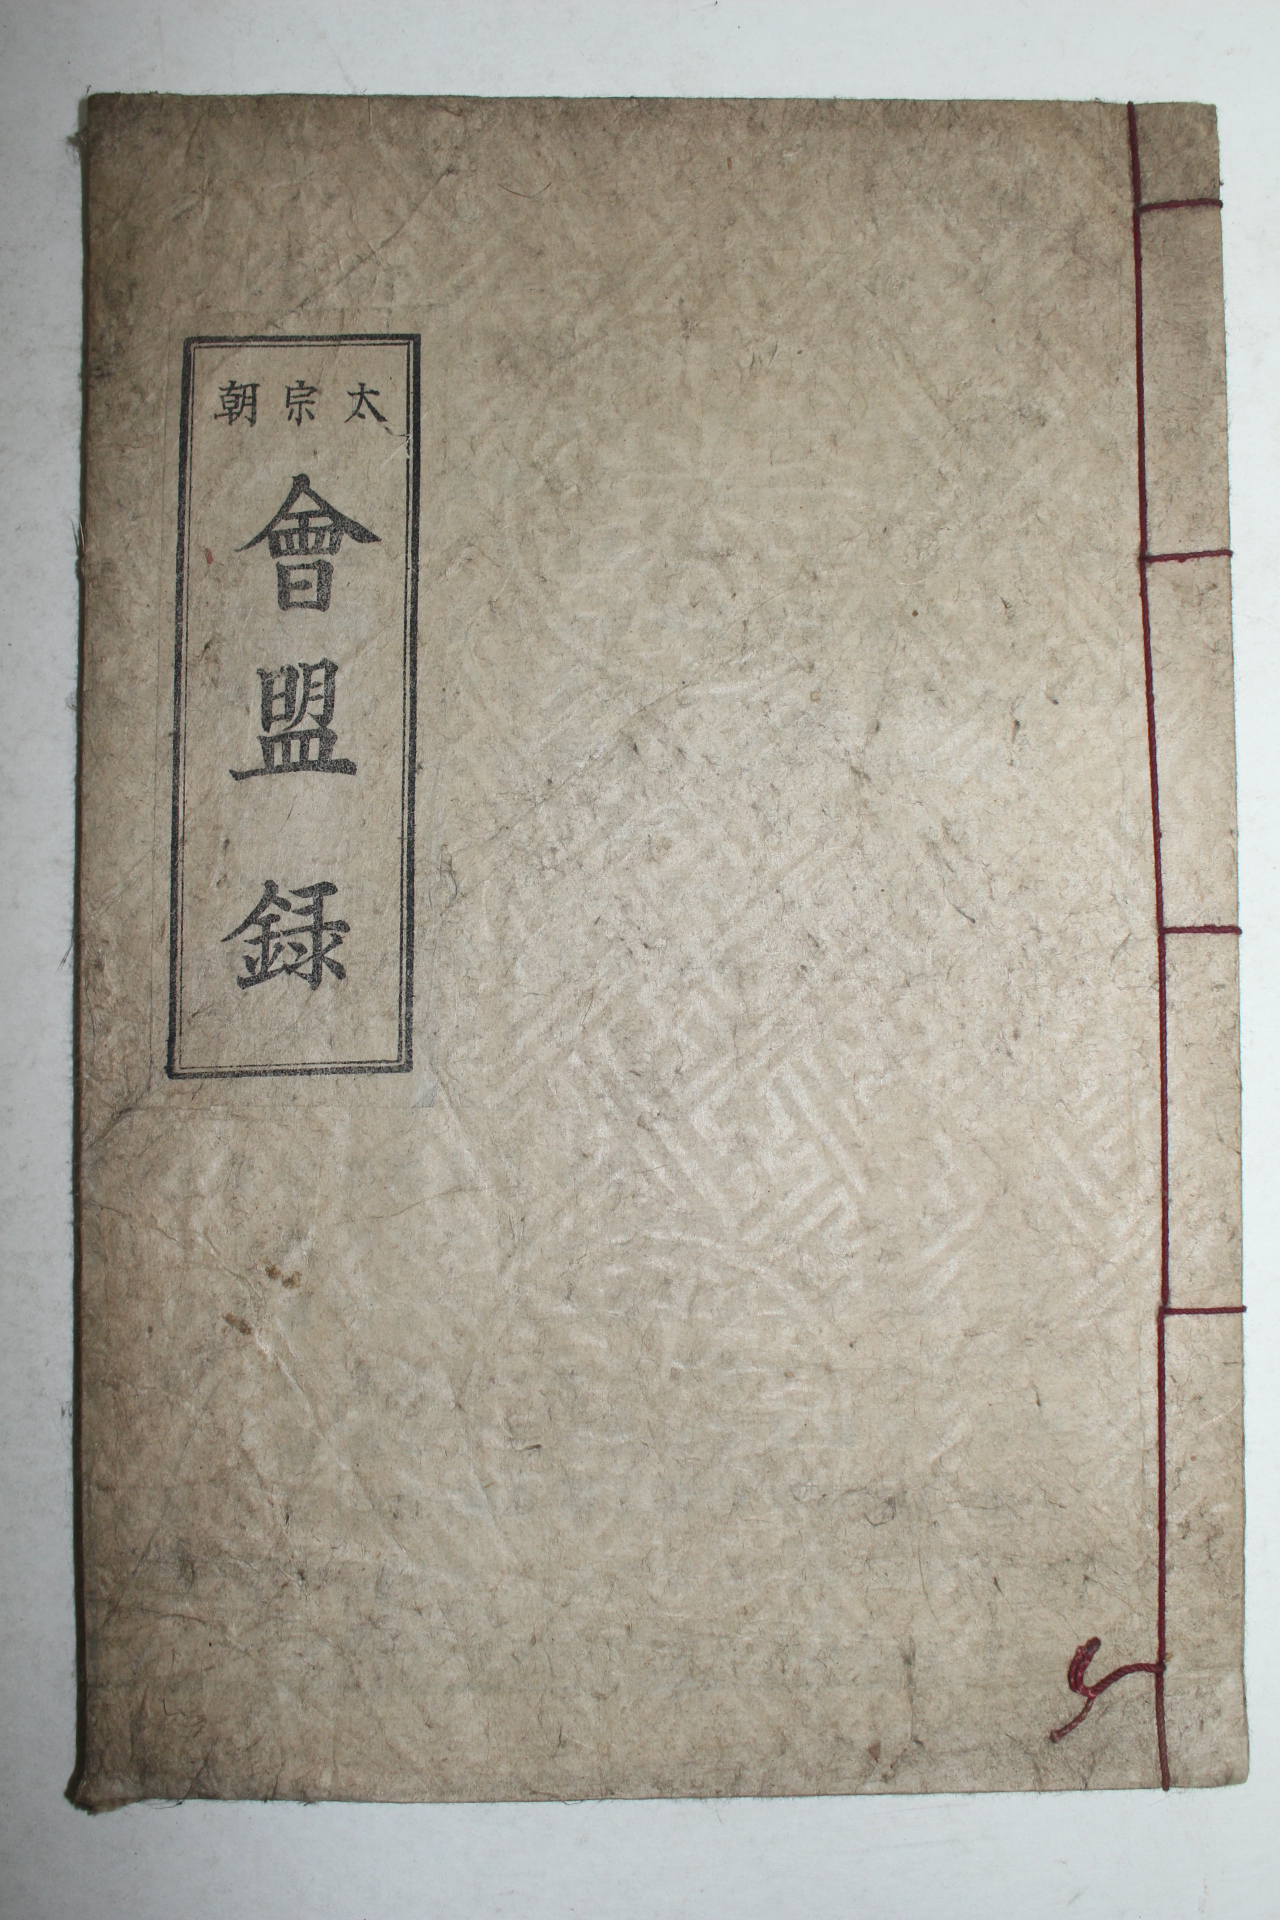 太宗朝
會盟錄